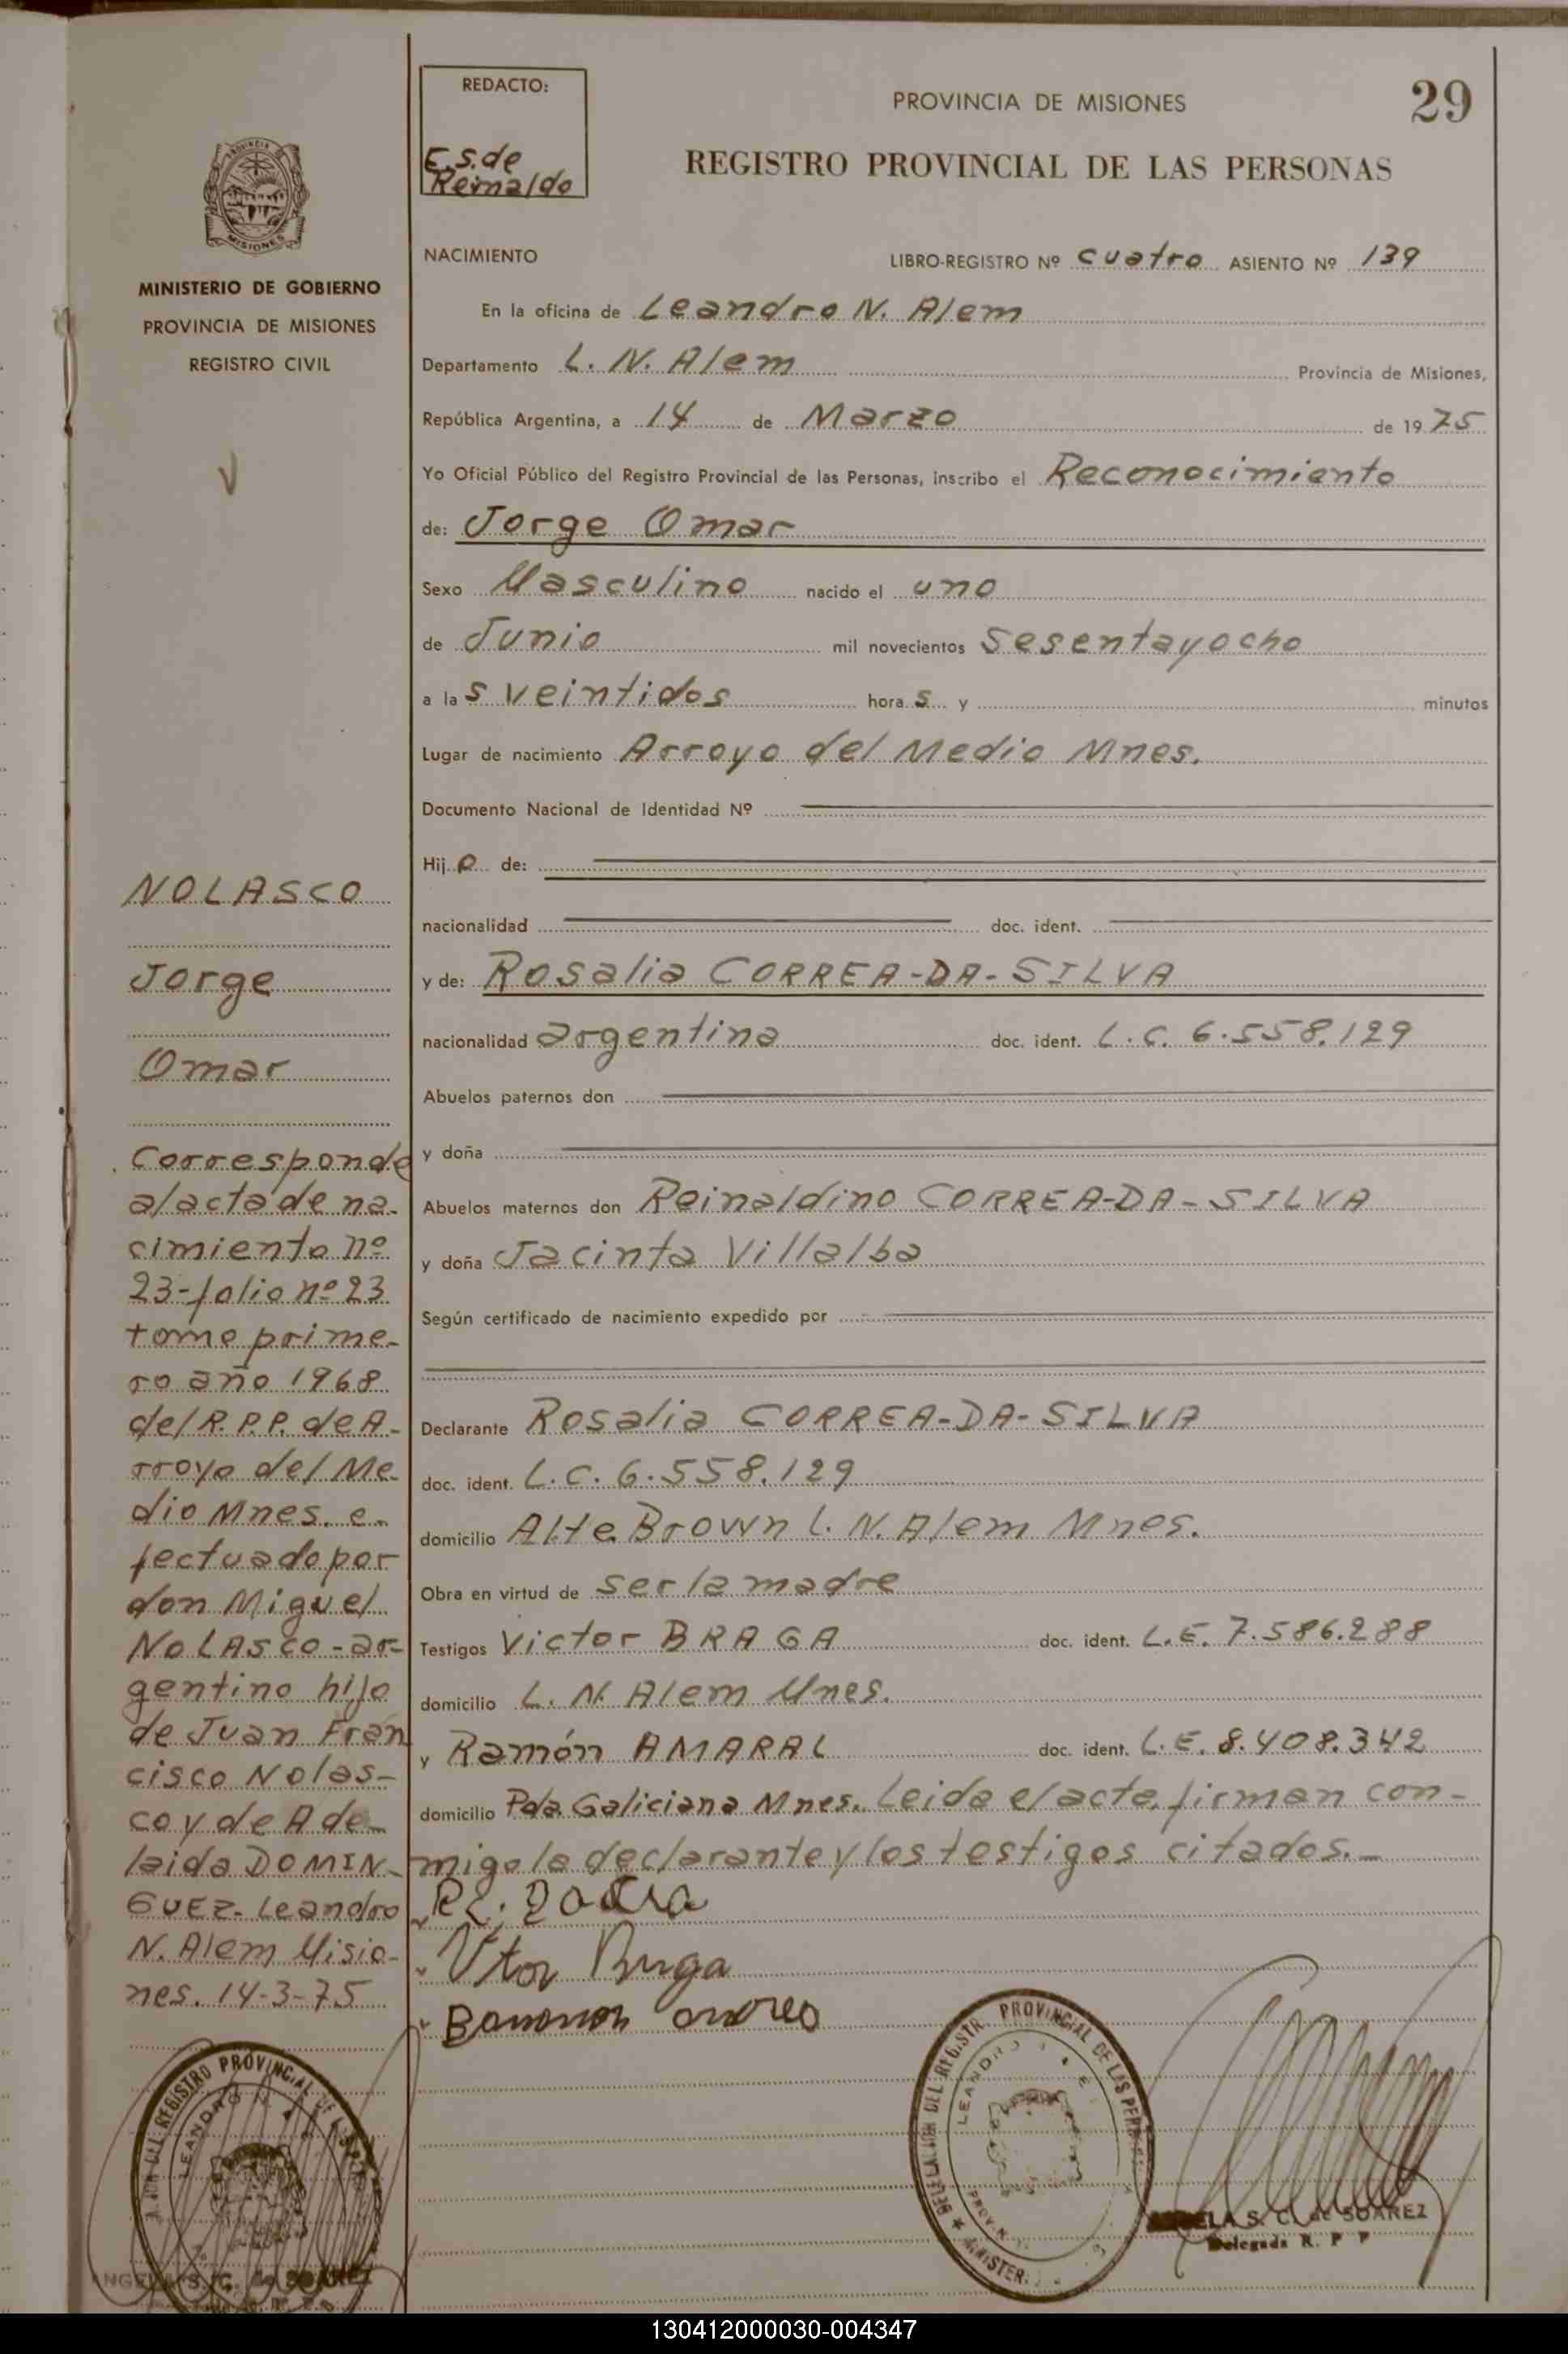 REDACTO:
E.S. de
Reinaldo
PROVINCIA DE MISIONES
29
REGISTRO PROVINCIAL DE LAS PERSONAS
PROVINCIA DE
MISIONES
MINISTERIO DE GOBIERNO
PROVINCIA DE MISIONES
REGISTRO CIVIL
NACIMIENTO
LIBRO-REGISTRO Nº cuatro ASIENTO Nº 139
En la oficina de Leandro N. Alem
Departamento L. N. Alem Provincia de Misiones,
República Argentina, a 14 de Marzo de 1975
Yo Oficial Público del Registro Provincial de las Personas, inscribo el Reconocimiento
de: Jorge Omar
Sexo Masculino nacido el uno
de Junio mil novecientos sesentayocho
a las veintidos horas y minutos
Lugar de nacimiento Arroyo del Medio Mnes.
Documento Nacional de Identidad Nº
Hijo de:
nacionalidad doc. ident.
y de: Rosalia CORREA-DA-SILVA
nacionalidad argentina doc. ident. L.C. 6.558.129
Abuelos paternos don
y doña
Abuelos maternos don Reinaldino CORREA-DA-SILVA
y doña Jacinta Villalba
Según certificado de nacimiento expedido por
Declarante Rosalia CORREA-DA-SILVA
doc. ident. L.C. 6.558.129
domicilio Alte. Brown L. N. Alem Mnes.
Obra en virtud de ser la madre
Testigos Victor BRAGA doc. ident. L.E. 7.586.288
domicilio L. N. Alem Mnes.
y Ramón AMARAL doc. ident. L.E. 8.408.342
domicilio Pda. Galiciana Mnes. Leida el acta, firman con-
migo la declarante y los testigos citados.-
NOLASCO
Jorge
Omar
Corresponde
al acta de na-
cimiento nº
23-folio nº 23
tomo prime-
ro año 1968
del R.P.P. de A-
rroyo del Me
dio Mnes. e-
fectuado por
don Miguel
NOLASCO-ar-
gentino hijo
de Juan Fran
cisco Nolas-
co y de Ade-
laida DOMIN-
GUEZ-Leandro
N. Alem Misio-
nes. 14-3-75
REGISTRO PROVINCIAL
LEANDRO N.
DELEGACION DEL REGISTR. PROVINCIAL DE LAS PER
LEANDRO
S. C. de SUAREZ
Delegada R. P P
S. C. de SUAREZ
130412000030-004347